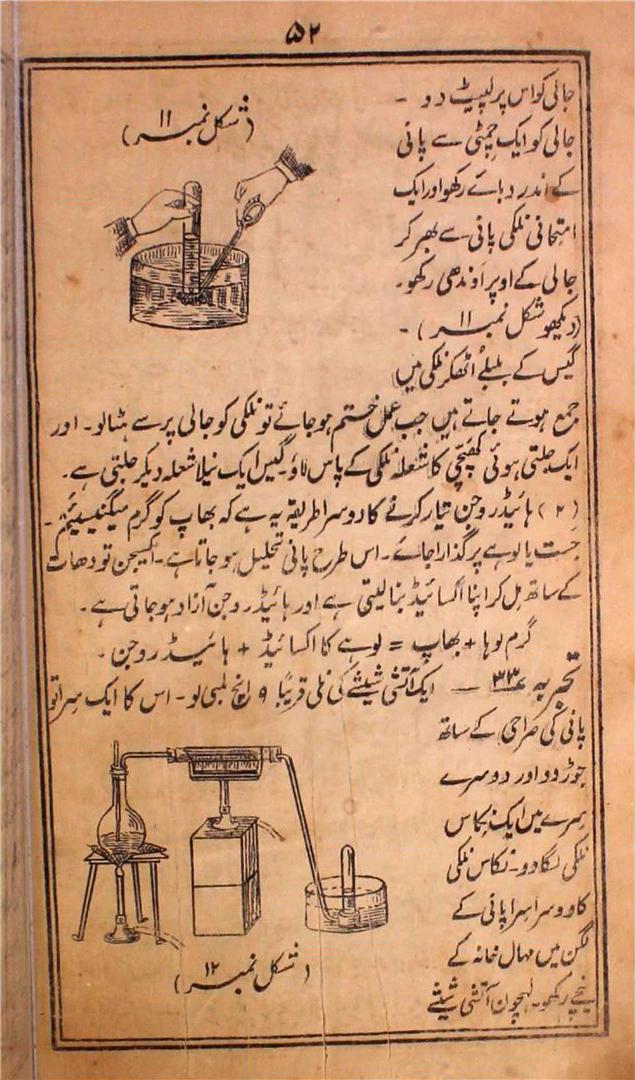 ۵۲
جالی کو اس پر لپیٹ دو ۔
(شکل نمبر ۱۱)
جالی کو ایک چمٹی سے پانی
کے اندر دبائے رکھو اور ایک
امتحانی نلکی پانی سے بھر کر
جالی کے اوپر اوندھی رکھو۔
(دیکھو شکل نمبر ۱۱) ۔
گیس کے بلبلے اُٹھکر نلکی میں
جمع ہوتے جاتے ہیں جب عمل ختم ہو جائے تو نلکی کو جالی پر سے ہٹا لو۔ اور
ایک جلتی ہوئی کھپچی کا شعلہ نلکی کے پاس لاؤ گیس ایک نیلا شعلہ دیکر جلتی ہے۔
(۲) ہائیڈروجن تیار کرنے کا دوسرا طریقہ یہ ہے کہ بھاپ کو گرم میگنیسیئم ۔
جست یا لوہے پر گذارا جائے۔ اس طرح پانی تحلیل ہو جاتا ہے۔ آکسیجن تو دھات
کے ساتھ مل کر اپنا اکسائیڈ بنا لیتی ہے اور ہائیڈروجن آزاد ہو جاتی ہے۔
گرم لوہا + بھاپ = لوہے کا اکسائیڈ + ہائیڈروجن ۔
تجربہ ۳۳ ـــ ایک آتشی شیشے کی نلی قریبًا ۹ انچ لمبی لو۔ اس کا ایک سرا تو
پانی کی صراحی کے ساتھ
جوڑ دو اور دوسرے
سرے میں ایک نکاس
نلکی لگا دو۔ نکاس نلکی
کا دوسرا سرا پانی کے
لگن میں مہال خانہ کے
نیچے رکھو۔ آتشی شیشے
(شکل نمبر ۱۲)